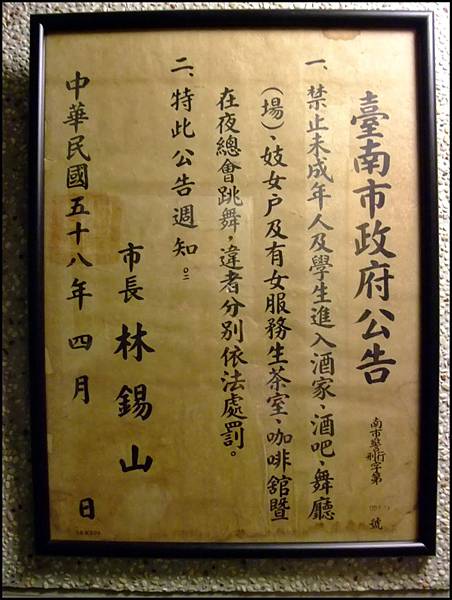 臺南市政府公告
南市警刑行字第 號
一、禁止未成年人及學生進入酒家、酒吧、舞廳
(場)、妓女户及有女服務生茶室、咖啡舘暨
在夜總會跳舞，違者分別依法處罰。
二、特此公告週知。
市長 林錫山
中華民國五十八年 四月 日